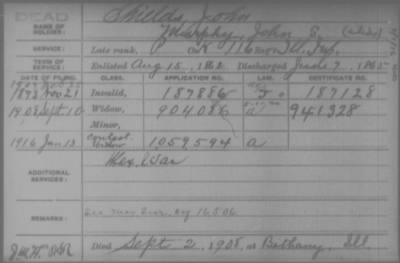 DEAD
NAME OF SOLDIER: Shields, John
Murphy, John S. (alias)
SERVICE: Late rank, Co. K 116 Mon Ill. Inf.
TERM OF SERVICE: Enlisted Aug 15, 1862 Discharged June 7, 1865
DATE OF FILING. CLASS. APPLICATION NO. LAW. CERTIFICATE NO.
1873 Nov 21 Invalid, 187886 187128
1908 Sept 10 Widow, 904086 a 941328
Minor,
1916 Jan 13 Contest. Widow 1059594 a
ADDITIONAL SERVICES: Mex. War
REMARKS: 16506
Died Sept 2, 1908, at Bethany, Ill.